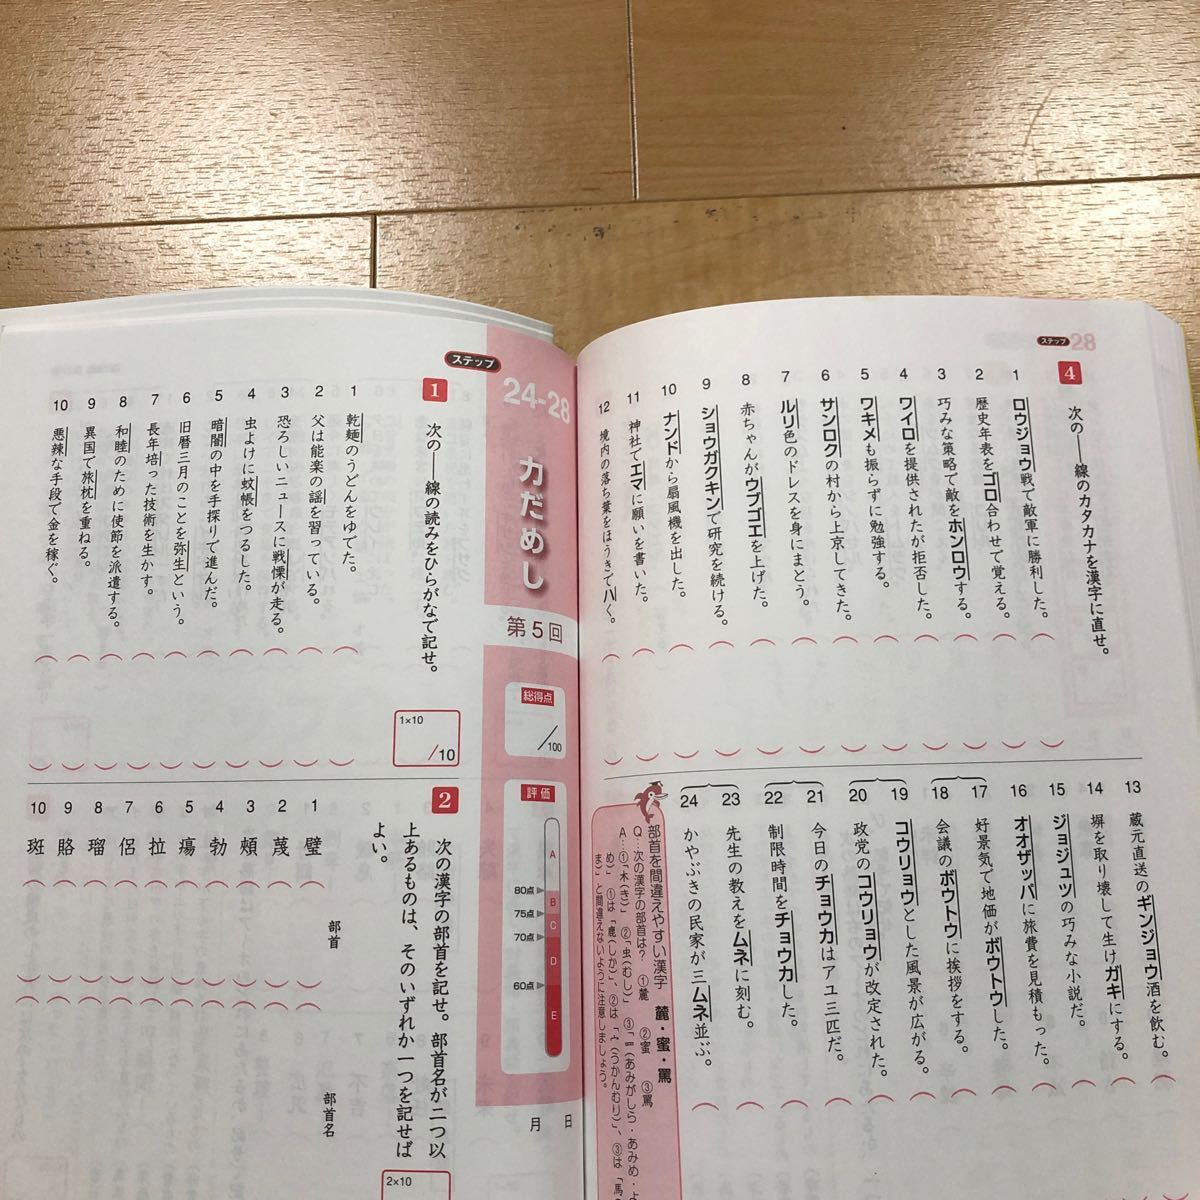 ステップ 28
4 次の――線のカタカナを漢字に直せ。
1 ロウジョウ戦で敵軍に勝利した。
2 歴史年表をゴロ合わせで覚える。
3 巧みな策略で敵をホンロウする。
4 ワイロを提供されたが拒否した。
5 ワキメも振らずに勉強する。
6 サンロクの村から上京してきた。
7 ルリ色のドレスを身にまとう。
8 赤ちゃんがウブゴエを上げた。
9 ショウガクキンで研究を続ける。
10 ナンドから扇風機を出した。
11 神社でエマに願いを書いた。
12 境内の落ち葉をほうきでハく。
13 蔵元直送のギンジョウ酒を飲む。
14 塀を取り壊して生けガキにする。
15 ジョジュツの巧みな小説だ。
16 オオザッパに旅費を見積もった。
17 好景気で地価がボウトウした。
18 会議のボウトウに挨拶をする。
19 コウリョウとした風景が広がる。
20 政党のコウリョウが改定された。
21 今日のチョウカはアユ三匹だ。
22 制限時間をチョウカした。
23 先生の教えをムネに刻む。
24 かやぶきの民家が三ムネ並ぶ。
部首を間違えやすい漢字 麓・蜜・罵
Q…次の漢字の部首は? ①麓 ②蜜 ③罵
A…①「木(き)」 ②「虫(むし)」 ③「罒(あみがしら・あみめ・よ
め)」 ①は「鹿(しか)」、②は「宀(うかんむり)」、③は「馬(う
ま)」と間違えないように注意しましょう。
ステップ 24-28
力だめし
第5回
総得点
/100
評価
A
B
C
D
E
80点
75点
70点
60点
月 日
1 次の――線の読みをひらがなで記せ。
1×10
/10
1 乾麺のうどんをゆでた。
2 父は能楽の謡を習っている。
3 恐ろしいニュースに戦慄が走る。
4 虫よけに蚊帳をつるした。
5 暗闇の中を手探りで進んだ。
6 旧暦三月のことを弥生という。
7 長年培った技術を生かす。
8 和睦のために使節を派遣する。
9 異国で旅枕を重ねる。
10 悪辣な手段で金を稼ぐ。
2 次の漢字の部首を記せ。部首名が二つ以
上あるものは、そのいずれか一つを記せば
よい。
2×10
部首
部首名
1 璧
2 蔑
3 頰
4 勃
5 瘍
6 拉
7 侶
8 瑠
9 賂
10 斑